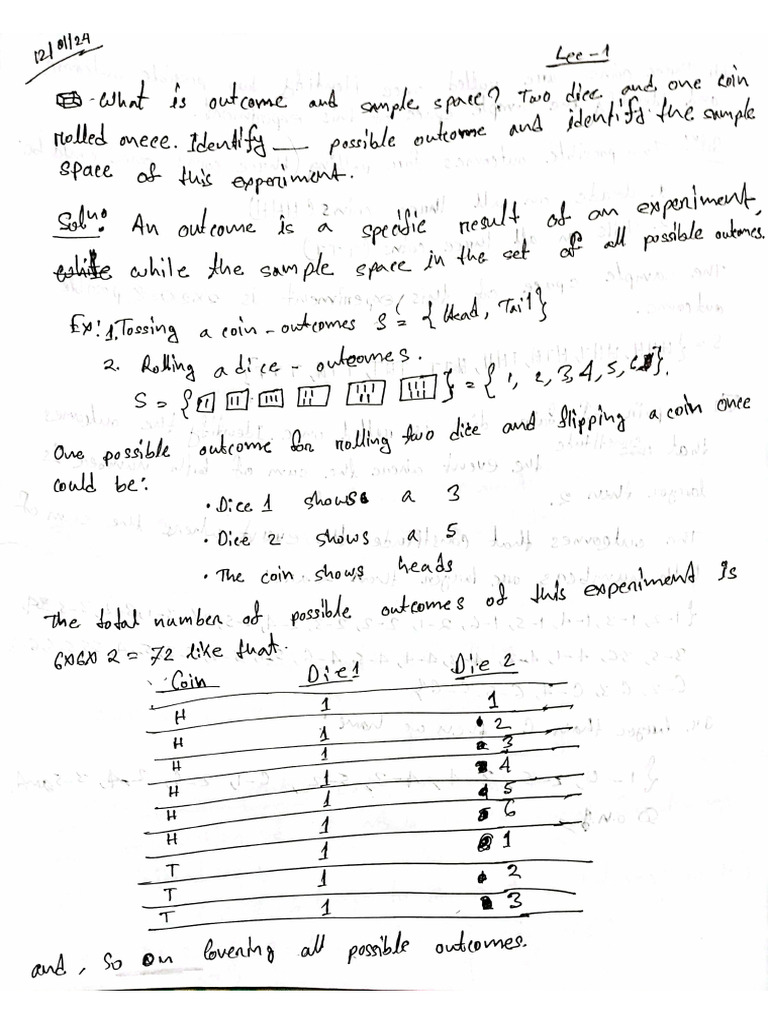 12/01/24
Lec-1
What is outcome and sample space? Two dice and one coin
rolled onece. Identify __ possible outcome and identify the sample
space of this experiment.
Solⁿ: An outcome is a specific result of an experiment,
while the sample space in the set of all possible outcomes.
Ex: 1. Tossing a coin - outcomes S = {Head, Tail}
2. Rolling a dice - outcomes.
S = { } = {1, 2, 3, 4, 5, 6}.
One possible outcome for rolling two dice and flipping a coin once
could be:
• Dice 1 shows a 3
• Dice 2 shows a 5
• The coin shows heads
The total number of possible outcomes of this experiment is
6×6×2 = 72 like that.
Coin Die1 Die 2
H 1 1
H 1 2
H 1 3
H 1 4
H 1 5
H 1 6
T 1 1
T 1 2
T 1 3
and, so on covering all possible outcomes.